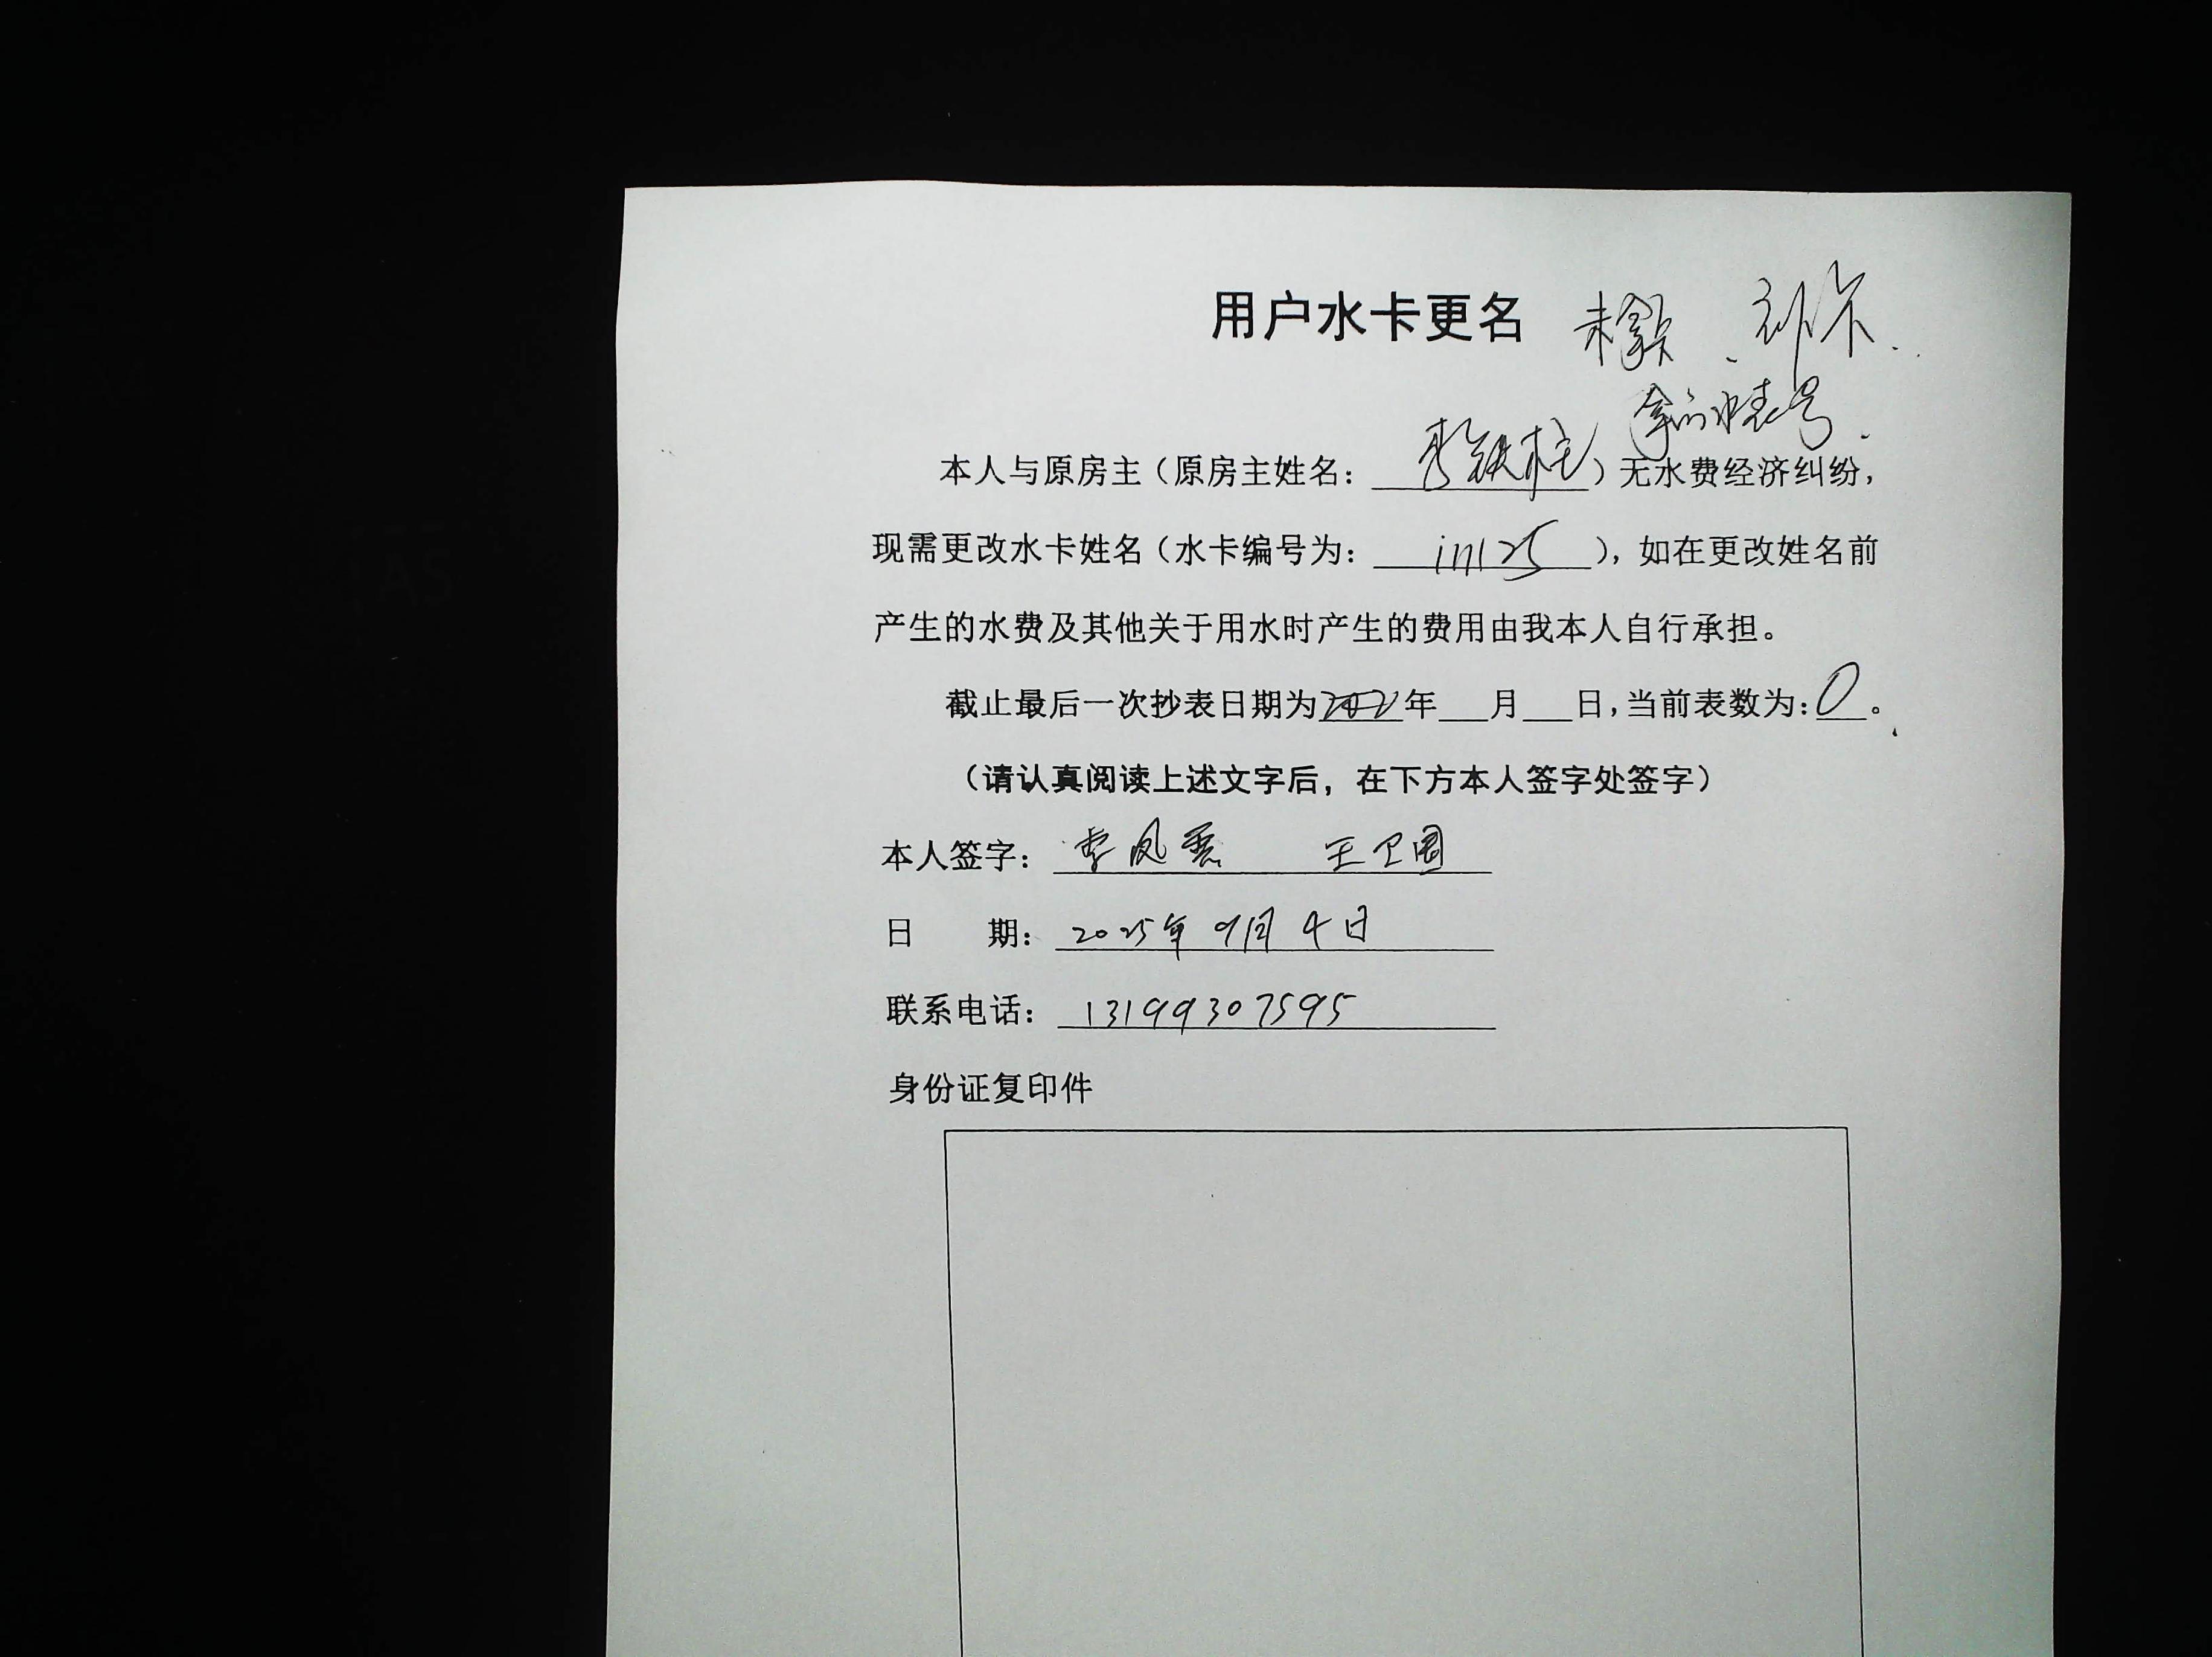 用户水卡更名 未拿 卡
拿的水表号
本人与原房主（原房主姓名：李铁柱）无水费经济纠纷，
现需更改水卡姓名（水卡编号为：），如在更改姓名前
产生的水费及其他关于用水时产生的费用由我本人自行承担。
截止最后一次抄表日期为年 月 日，当前表数为：0。
（请认真阅读上述文字后，在下方本人签字处签字）
本人签字：李凤 王卫国
日 期：2025年9月4日
联系电话：13199307595
身份证复印件